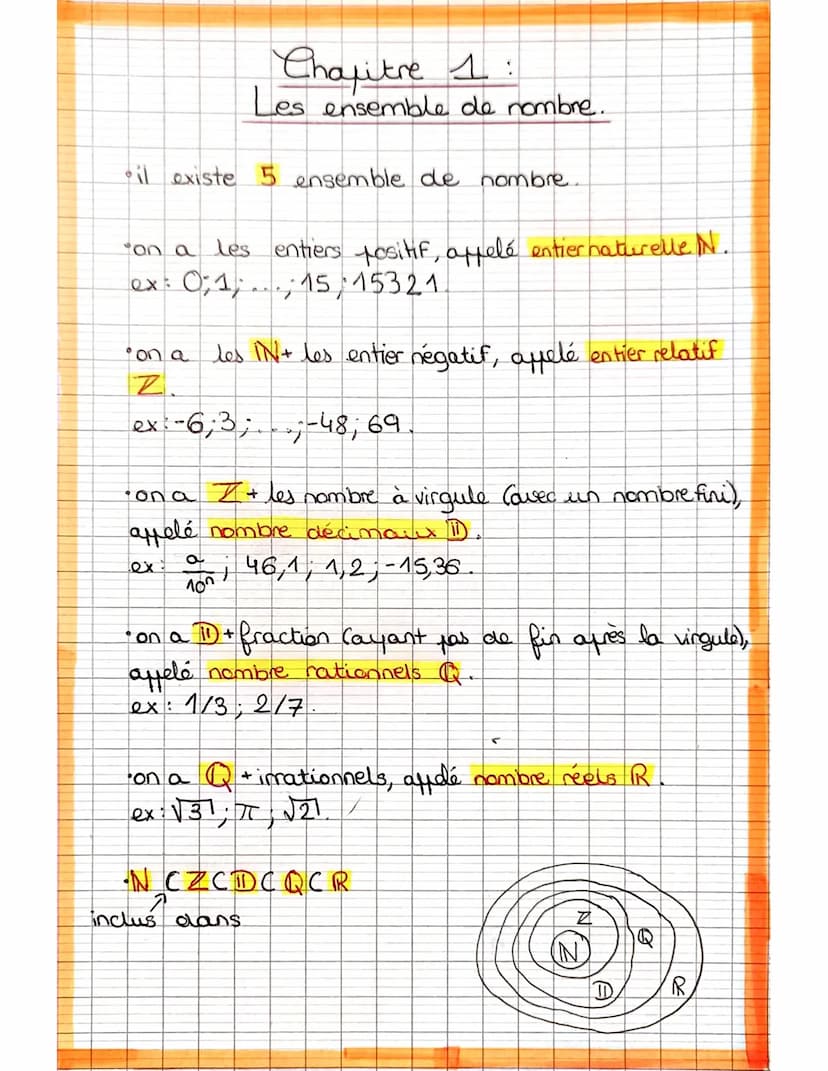 Chapitre 1 :
Les ensemble de nombre.
• il existe 5 ensemble de nombre.
• on a les entiers positif, appelé entier naturelle ℕ.
ex : 0; 1; ...; 15; 15321.
• on a les ℕ + les entier négatif, appelé entier relatif
ℤ.
ex : -6; 3; ...; -48; 69.
• on a ℤ + les nombre à virgule (avec un nombre fini),
appelé nombre décimaux 𝔻.
ex : a/10ⁿ ; 46,1; 1,2; -15,36.
• on a 𝔻 + fraction (ayant pas de fin après la virgule),
appelé nombre rationnels ℚ.
ex : 1/3 ; 2/7.
• on a ℚ + irrationnels, appelé nombre réels ℝ.
ex : √3 ; π ; √2.
• ℕ ⊂ ℤ ⊂ 𝔻 ⊂ ℚ ⊂ ℝ
inclus dans
ℤ
ℚ
ℕ
𝔻
ℝ